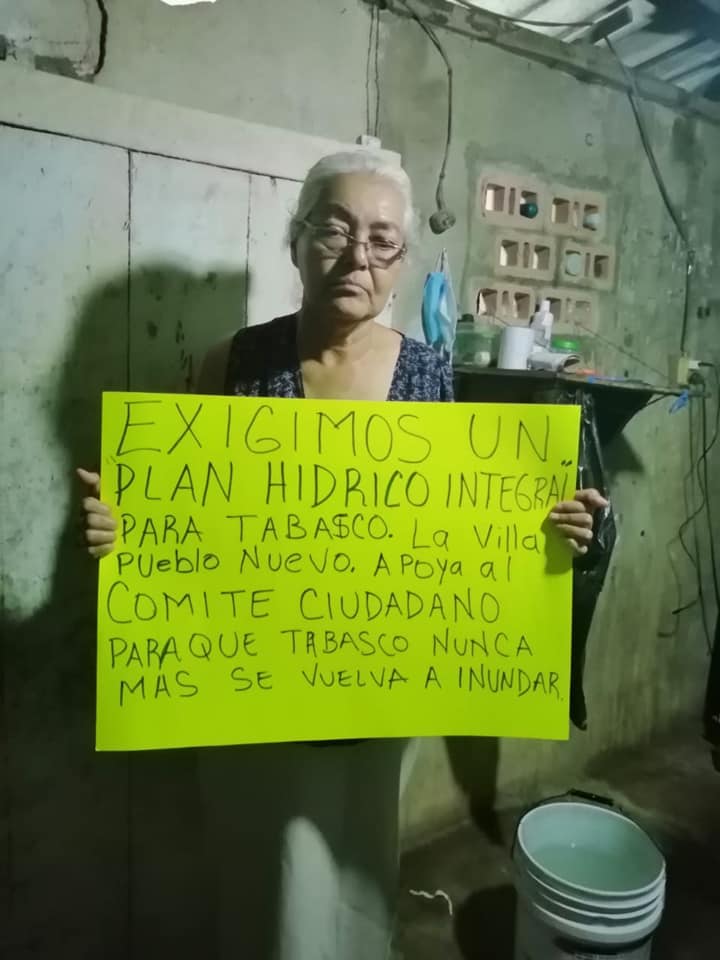 EXIGIMOS UN
"PLAN HIDRICO INTEGRAL"
PARA TABASCO. La Villa
Pueblo Nuevo. APoya al
COMITE CIUDADANO
PARA QUE TABASCO NUNCA
MAS SE VUELVA A INUNDAR.